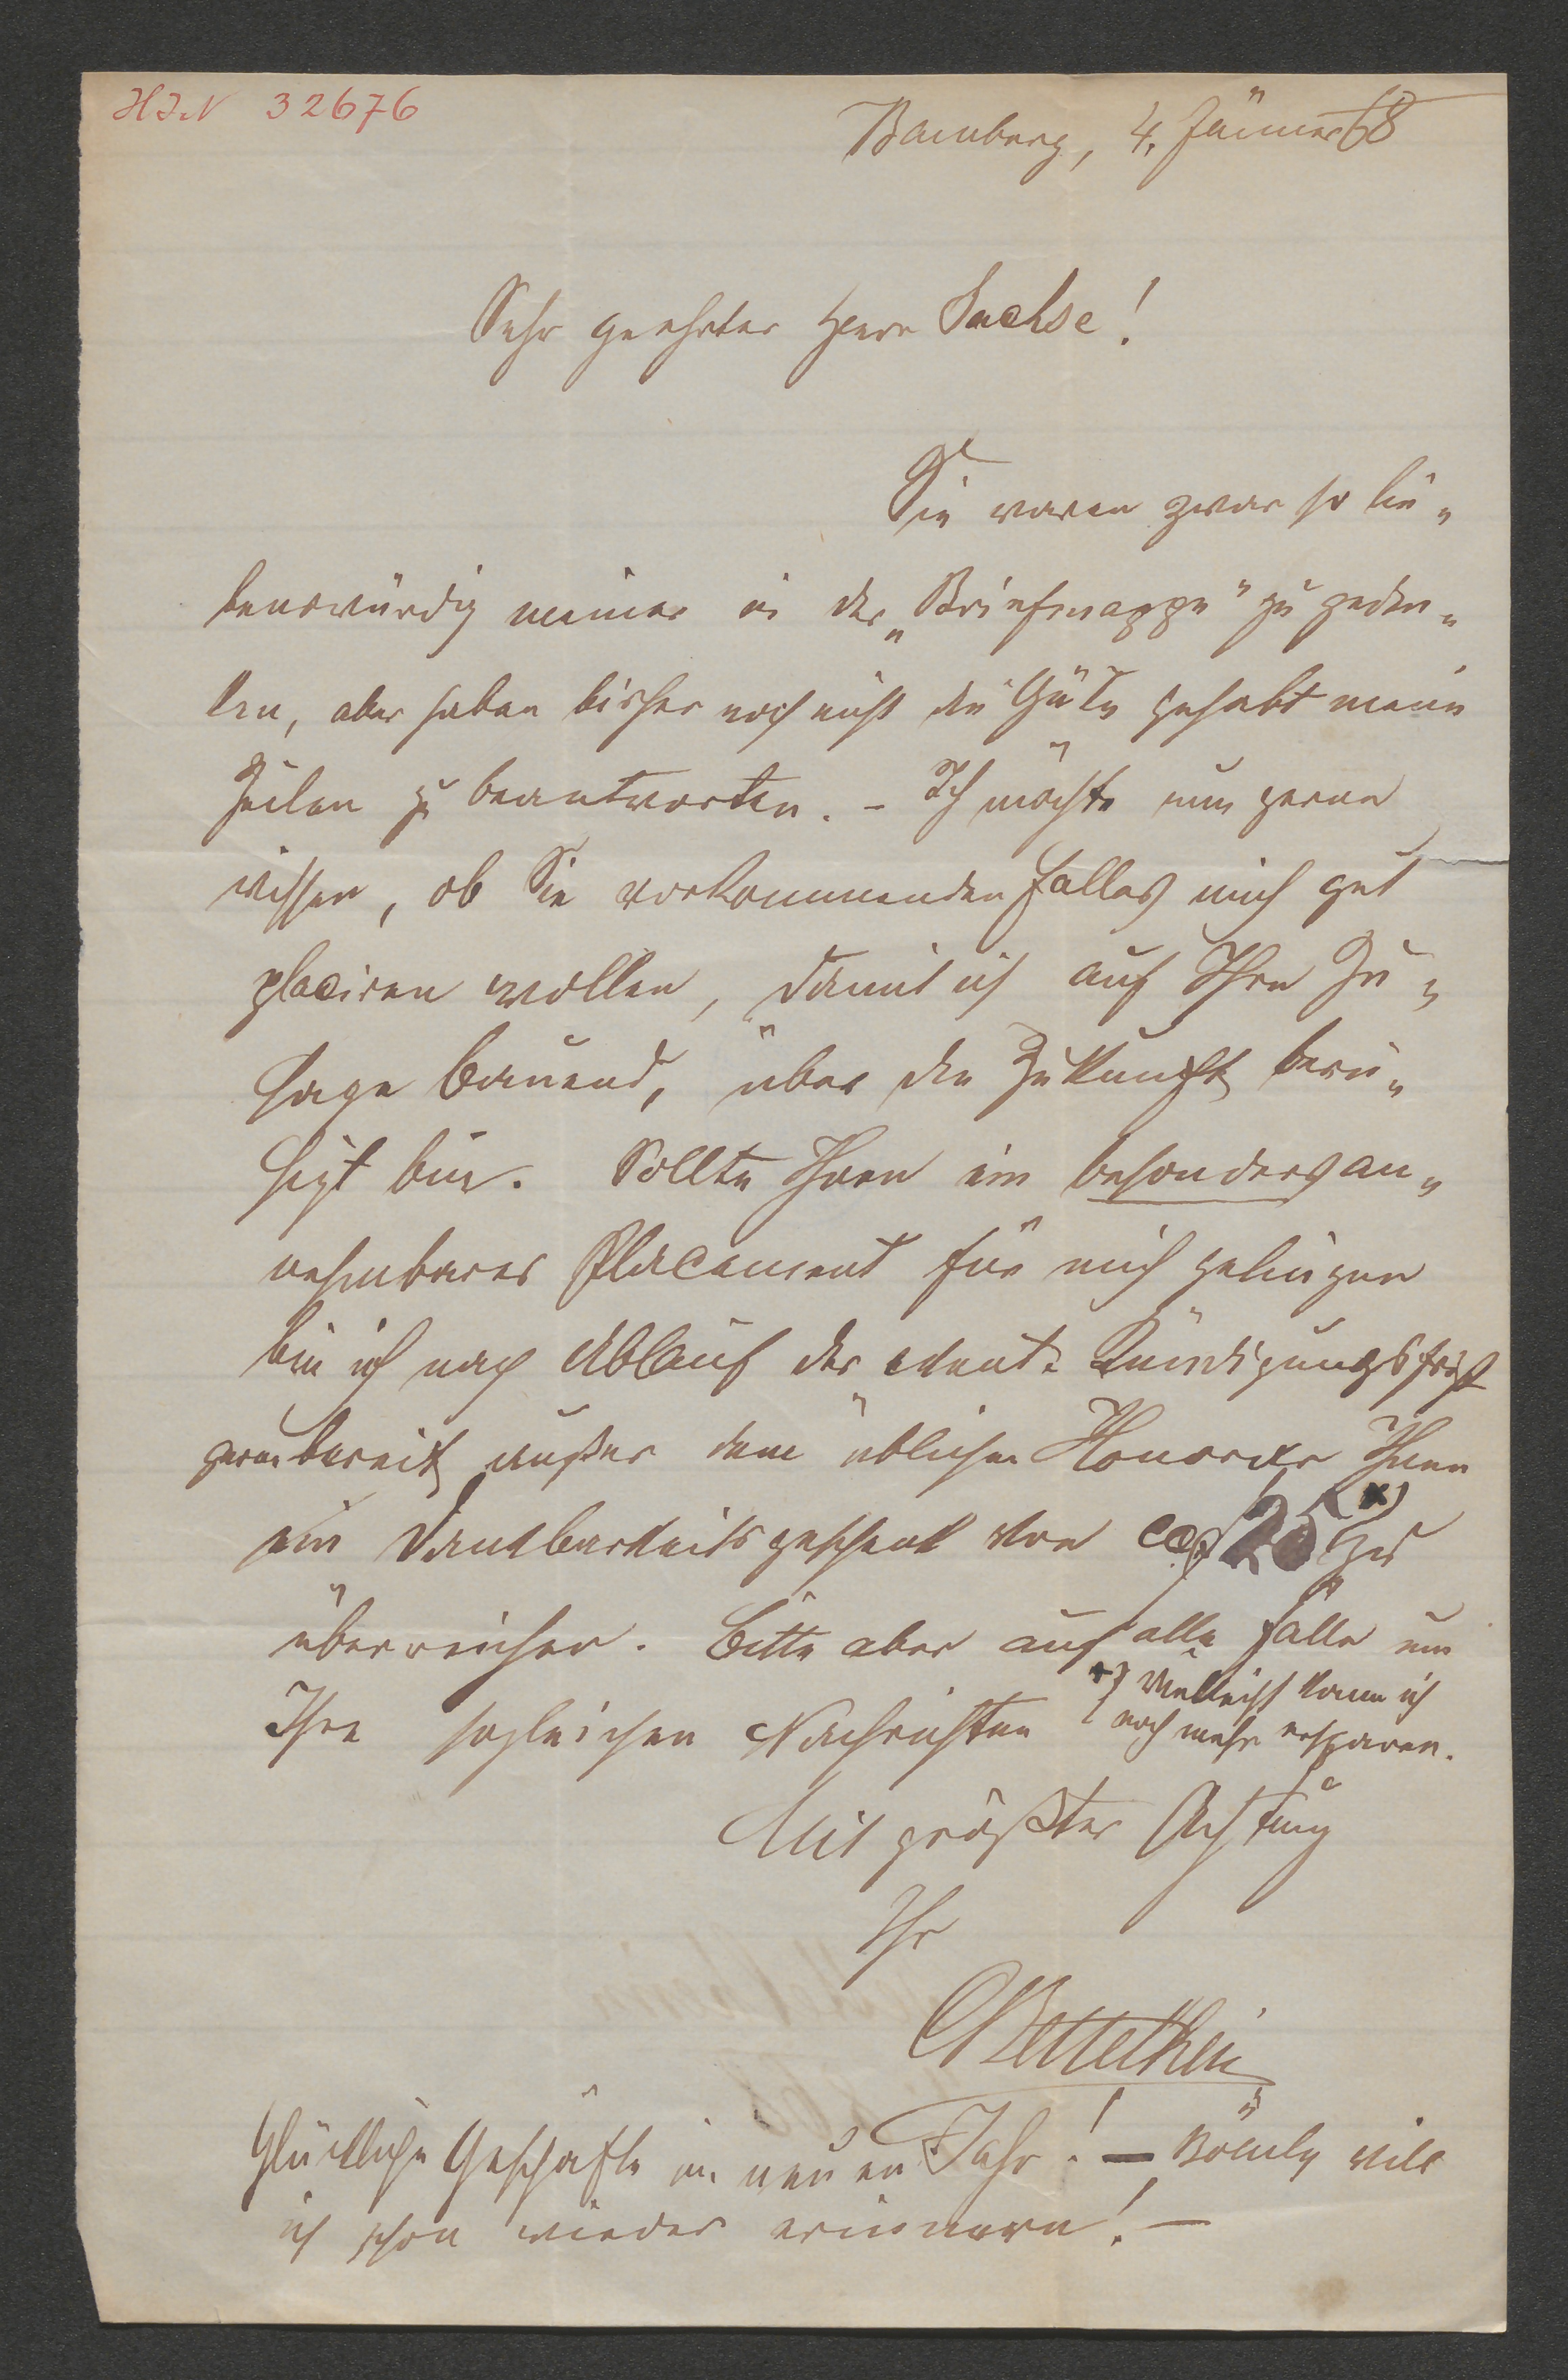 HIN 32676
Bamberg, 4. Jänner 68
Sehr geehrter Herr Sachse!
Sie waren zwar so lie„
benswürdig meiner in der „Briefmappe" zu geden„
ken, aber haben bisher noch nicht die Güte gehabt meine
Zeilen zu beantworten. – Ich möchte nun gerne
wissen, ob Sie vorkommenden Falles mich gut
placiren wollen, damit ich auf Ihre Zu„
sage bauend, über die Zukunft beru„
higt bin. Sollte Ihnen ein besonders an„
nehmbares Placement für mich gelingen
bin ich nach Ablauf der event. Kündigungsfrist
gern bereit außer dem üblichen Honorar Ihnen
ein Dankbarkeitsgeschenk von 25 x) zu
überreichen. Bitte aber auf alle Fälle um
Ihre sogleichen Nachrichten
x) Vielleicht kann ich
noch mehr ersparen.
Mit größter Achtung
Ihr
CBettelhei
Glückliche Geschäfte im neuen Jahr! – will
ich schon wieder erinnern! –